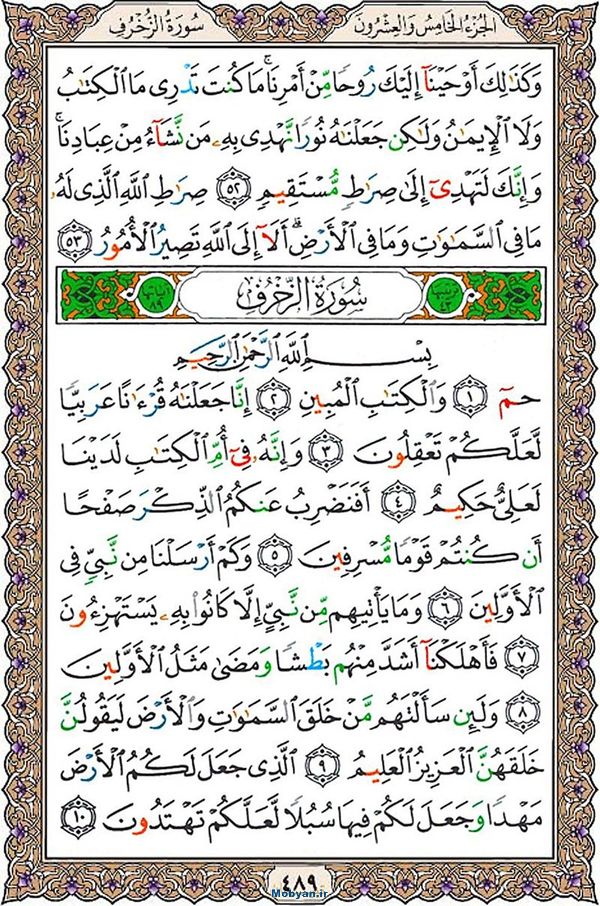 الجزء الخامس والعشرون
سورة الزخرف
وَكَذَٰلِكَ أَوْحَيْنَآ إِلَيْكَ رُوحًا مِّنْ أَمْرِنَا ۚ مَا كُنتَ تَدْرِى مَا ٱلْكِتَٰبُ
وَلَا ٱلْإِيمَٰنُ وَلَٰكِن جَعَلْنَٰهُ نُورًا نَّهْدِى بِهِۦ مَن نَّشَآءُ مِنْ عِبَادِنَا ۚ
وَإِنَّكَ لَتَهْدِىٓ إِلَىٰ صِرَٰطٍ مُّسْتَقِيمٍ ٥٢ صِرَٰطِ ٱللَّهِ ٱلَّذِى لَهُۥ
مَا فِى ٱلسَّمَٰوَٰتِ وَمَا فِى ٱلْأَرْضِ ۗ أَلَآ إِلَى ٱللَّهِ تَصِيرُ ٱلْأُمُورُ ٥٣
سُورَةُ ٱلزُّخْرُفِ
بِسْمِ ٱللَّهِ ٱلرَّحْمَٰنِ ٱلرَّحِيمِ
حمٓ ١ وَٱلْكِتَٰبِ ٱلْمُبِينِ ٢ إِنَّا جَعَلْنَٰهُ قُرْءَٰنًا عَرَبِيًّا
لَّعَلَّكُمْ تَعْقِلُونَ ٣ وَإِنَّهُۥ فِىٓ أُمِّ ٱلْكِتَٰبِ لَدَيْنَا
لَعَلِىٌّ حَكِيمٌ ٤ أَفَنَضْرِبُ عَنكُمُ ٱلذِّكْرَ صَفْحًا
أَن كُنتُمْ قَوْمًا مُّسْرِفِينَ ٥ وَكَمْ أَرْسَلْنَا مِن نَّبِىٍّ فِى
ٱلْأَوَّلِينَ ٦ وَمَا يَأْتِيهِم مِّن نَّبِىٍّ إِلَّا كَانُوا۟ بِهِۦ يَسْتَهْزِءُونَ
٧ فَأَهْلَكْنَآ أَشَدَّ مِنْهُم بَطْشًا وَمَضَىٰ مَثَلُ ٱلْأَوَّلِينَ
٨ وَلَئِن سَأَلْتَهُم مَّنْ خَلَقَ ٱلسَّمَٰوَٰتِ وَٱلْأَرْضَ لَيَقُولُنَّ
خَلَقَهُنَّ ٱلْعَزِيزُ ٱلْعَلِيمُ ٩ ٱلَّذِى جَعَلَ لَكُمُ ٱلْأَرْضَ
مَهْدًا وَجَعَلَ لَكُمْ فِيهَا سُبُلًا لَّعَلَّكُمْ تَهْتَدُونَ ١٠
٤٨٩
Mobyan.ir